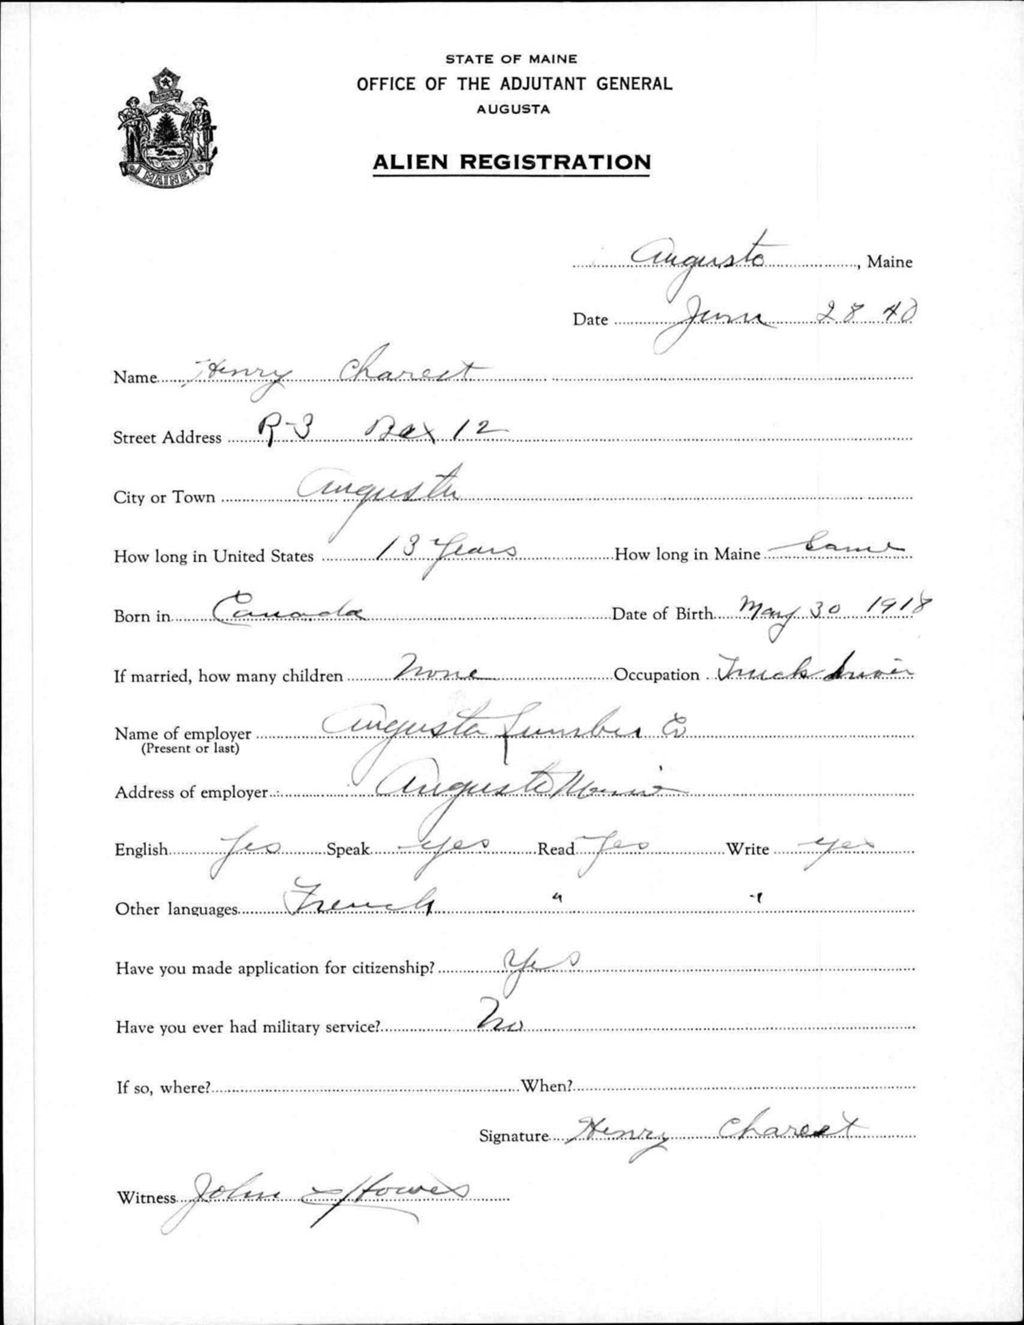 STATE OF MAINE
OFFICE OF THE ADJUTANT GENERAL
AUGUSTA
ALIEN REGISTRATION
MAINE
Augusta, Maine
Date June 28 40
Name Henry Charest
Street Address R-3 Box 12
City or Town Augusta
How long in United States 13 Years How long in Maine Same
Born in Canada Date of Birth May 30 1918
If married, how many children None Occupation Truck driver
Name of employer Augusta Lumber Co
(Present or last)
Address of employer Augusta Maine
English Yes Speak yes Read Yes Write yes
Other languages French " "
Have you made application for citizenship? Yes
Have you ever had military service? No
If so, where? When?
Signature Henry Charest
Witness John E Howes